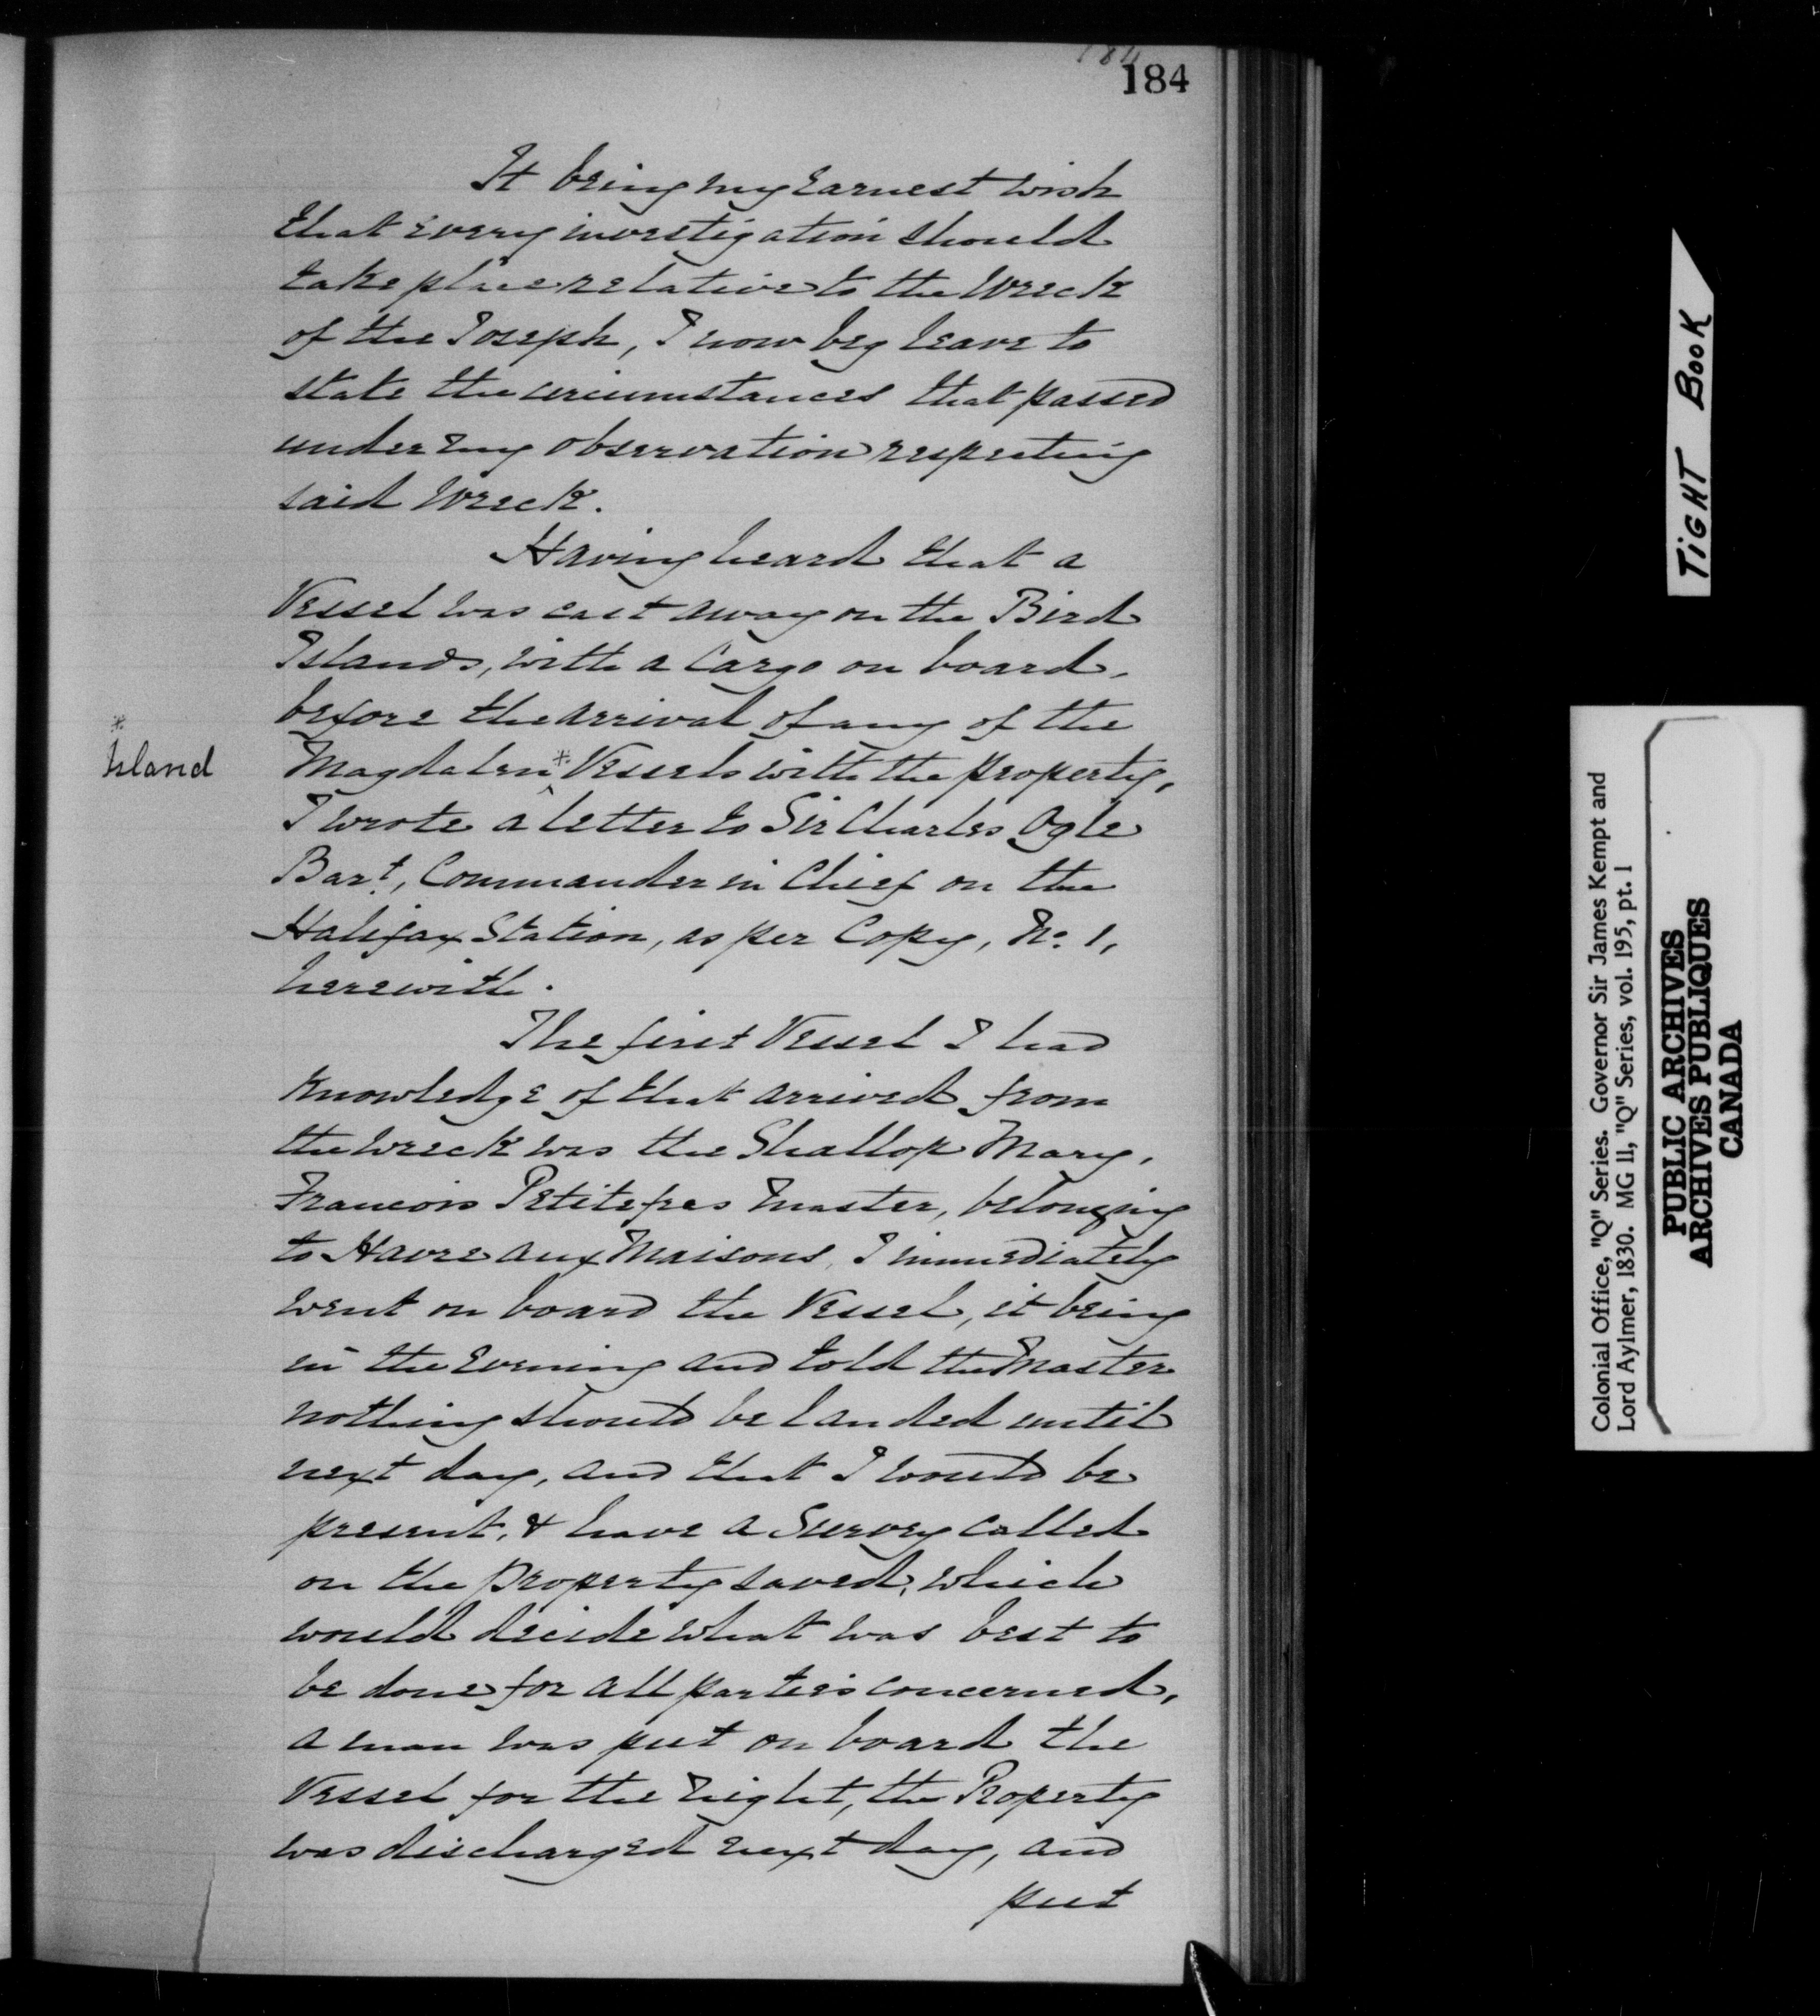 184
184
It being my Earnest wish
that every investigation should
take place relative to the Wreck
of the Joseph, I now beg leave to
state the circumstances that passed
under my observation respecting
said Wreck.
Having heard that a
Vessel was cast away on the Bird
Islands, with a Cargo on board,
before the arrival of any of the
*
Island
Magdalen * Vessels with the property,
I wrote a letter to Sir Charles Ogle
Bart, Commander in Chief on the
Halifax Station, as per Copy, No. 1,
herewith.
The first Vessel I had
knowledge of that arrived from
the wreck was the Shallop Mary,
Francois Petitepas Master, belonging
to Havre aux Maisons, I immediately
went on board the Vessel, it being
in the Evening and told the Master
nothing should be landed until
next day, and that I would be
present, & have a Survey called
on the Property saved, which
would decide what was best to
be done for all parties concerned,
a man was put on board the
Vessel for the Night, the Property
was discharged next day, and
put
TIGHT BOOK
Colonial Office, "Q" Series. Governor Sir James Kempt and
Lord Aylmer, 1830. MG 11, "Q" Series, vol. 195, pt. 1
PUBLIC ARCHIVES
ARCHIVES PUBLIQUES
CANADA